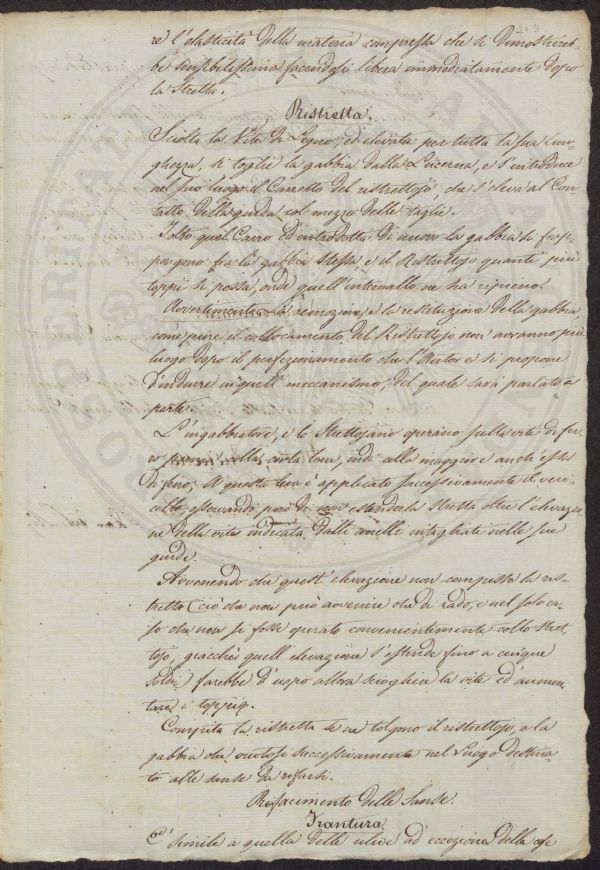 re l'elasticità della materia compressa che si dimostrereb-
be sensibilissima facendosi libera immediatamente dopo
la Stretta.
Ristretta.
Sciolta la Vite di Legno, ed elevata per tutta la sua lun-
ghezza, si toglie la gabbia dalla Lucerna, e s'introduce
nel suo luogo il Carretto del ristrettojo che s'eleva al Con-
tatto della guida col mezzo delle taglie.
Tolto quel Carro ed introdotta di nuovo la gabbia si frap-
pongono fra la gabbia stessa, e il Ristrettojo quanti più
toppi si possa, onde quell'intervallo ne sia ripieno.
Avvertimento. La remozione, e la restituzione della gabbia,
come pure il collocamento del Ristrettojo non avranno più
luogo dopo il perfezionamento che l'Autore si propone
d'indurre in quell meccanismo, del quale sarà parlato a
parte.
L'ingabbiatore, e lo Strettojano operano sulla vite di fer-
ro prima colla corta leva, indi colla maggiore anch'essa
di ferro; A questa leva è applicato successivamente il veri-
cello, osservando però di non estendere la stretta oltre l'elevazio-
ne della vite indicata dalli anelli intagliati nelle sue
guide.
Avvenendo che quest'elevazione non compisse la ris-
tretta (ciò che non può avvenire che di rado, e nel solo ca-
so che non si fosse operato convenientemente collo Stret-
tojo, giacchè quell'elevazione s'estende fino a cinque
Soldi) farebbe d'uopo allora sciogliere la vite ed aumen-
tare i toppi.
Compita la ristretta se ne tolgono il ristrettojo, e la
gabbia che vuotasi successivamente nel Luogo destina-
to alle sanse da rifarsi.
Rifacimento delle Sanse.
Frantura
E' simile a quella delle ulive ad eccezione della